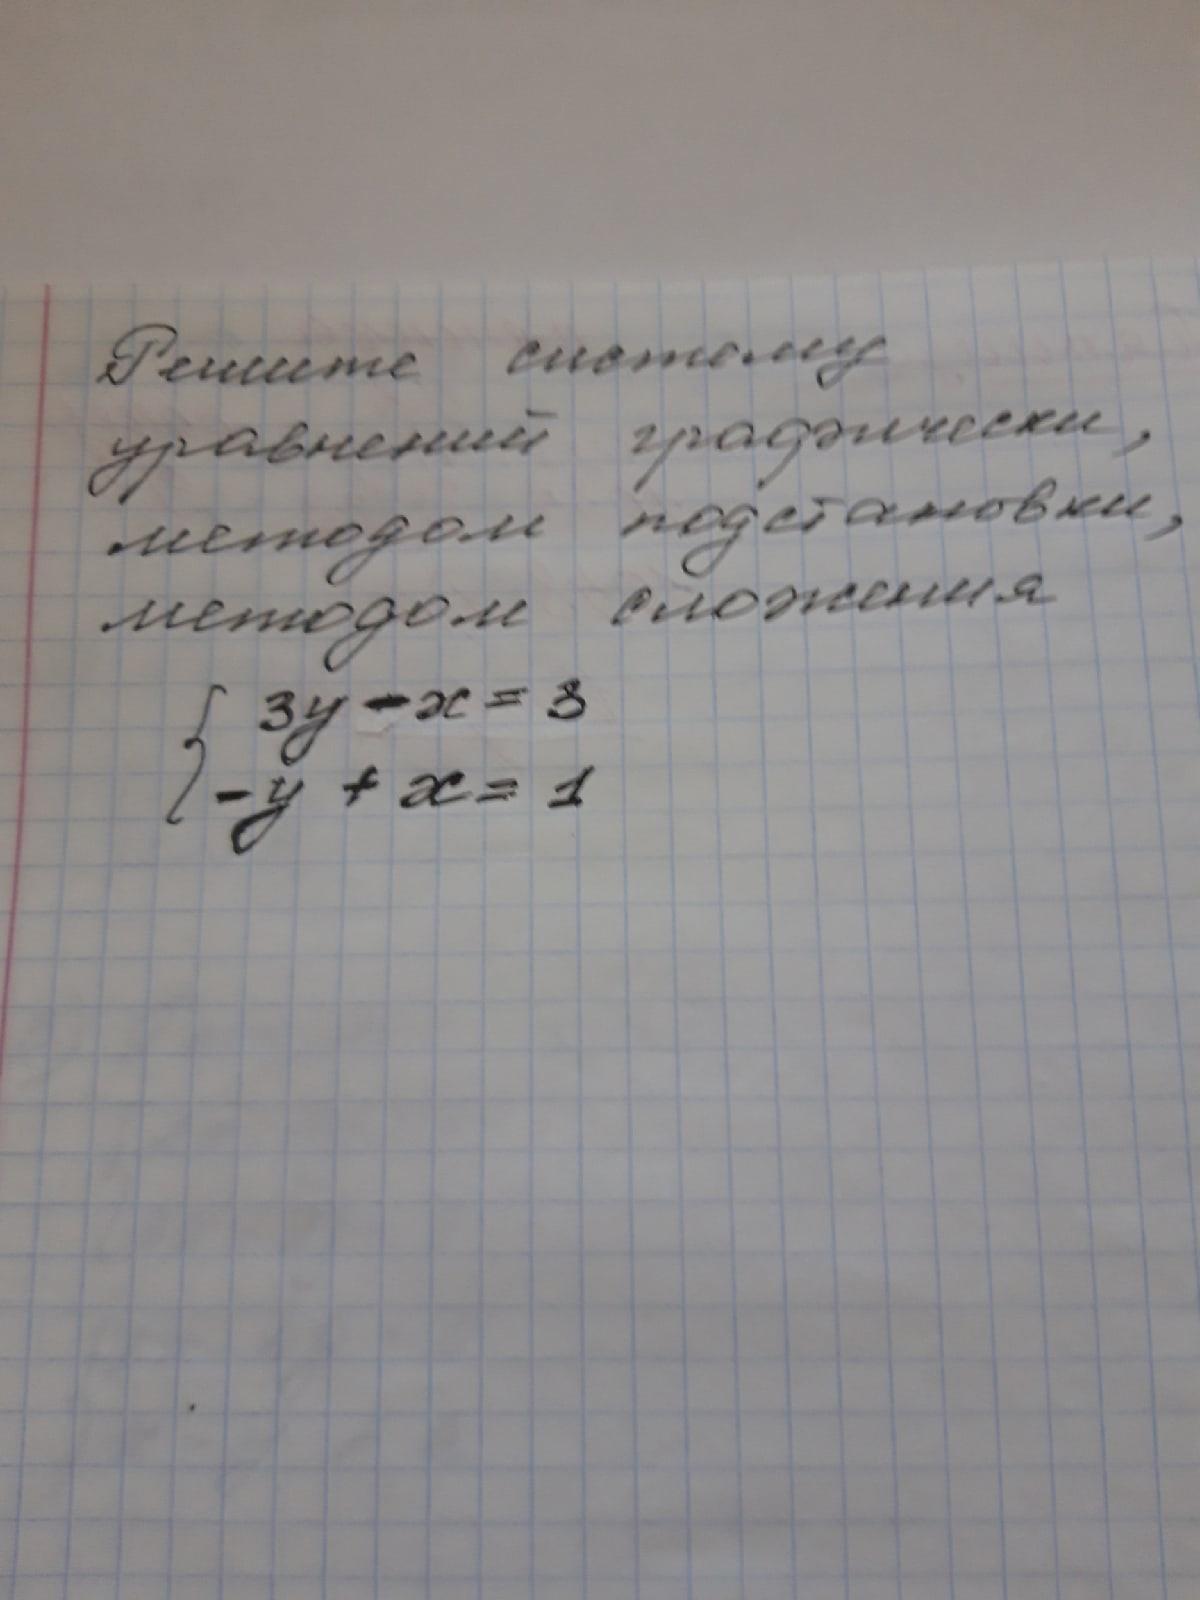 Решите систему
уравнений графически,
методом подстановки,
методом сложения
{ 3y - x = 3
-y + x = 1